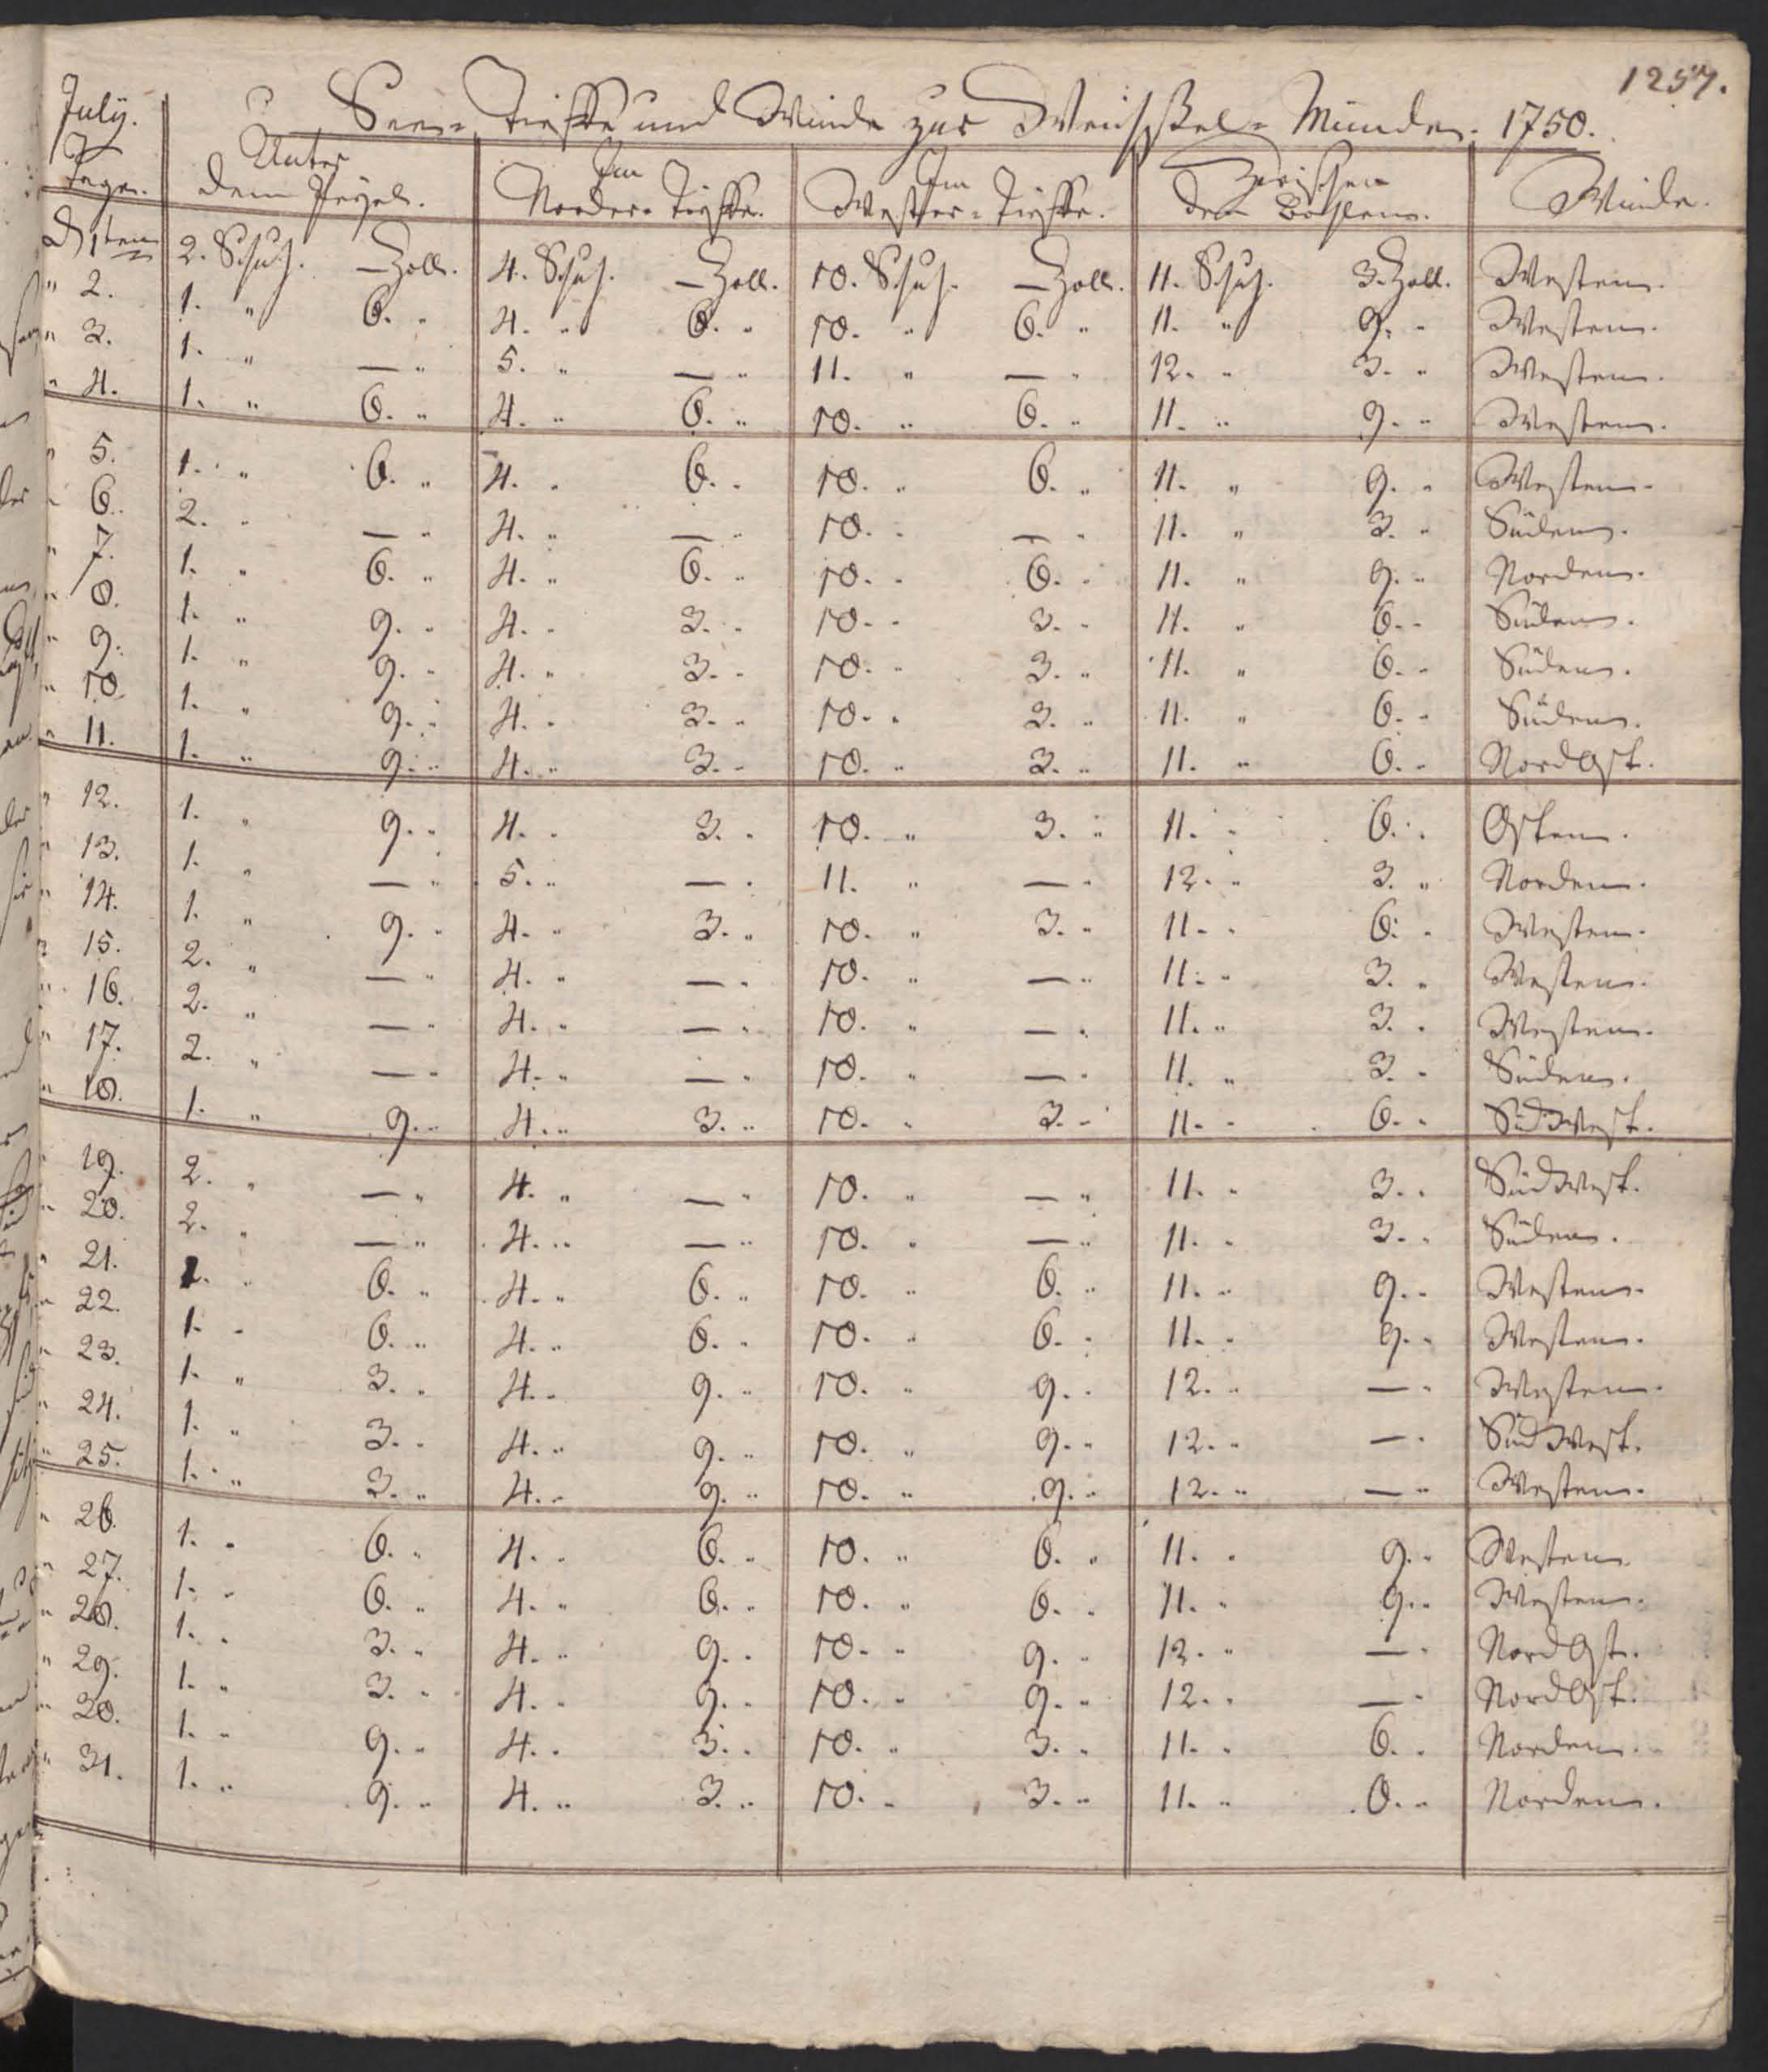 1257.
July. See-Tieffe und Winde zur Weichsel-Münde. 1750.
Tage. Unter dem Pegel. Im Norder-Tieffe. Im Wester-Tieffe. Zwischen den Bohlen. Winde.
D 1ten 2. Schuh. — Zoll. 4. Schuh. — Zoll. 10. Schuh. — Zoll. 11. Schuh. 3. Zoll. Westen.
" 2. 1. " 6. " 4. " 6. " 10. " 6. " 11. " 9. " Westen.
" 3. 1. " — " 5. " — " 11. " — " 12. " 3. " Westen.
" 4. 1. " 6. " 4. " 6. " 10. " 6. " 11. " 9. " Westen.
" 5. 1. " 6. " 4. " 6. " 10. " 6. " 11. " 9. " Westen.
" 6. 2. " — " 4. " — " 10. " — " 11. " 3. " Süden.
" 7. 1. " 6. " 4. " 6. " 10. " 6. " 11. " 9. " Norden.
" 8. 1. " 9. " 4. " 3. " 10. " 3. " 11. " 6. " Süden.
" 9. 1. " 9. " 4. " 3. " 10. " 3. " 11. " 6. " Süden.
" 10. 1. " 9. " 4. " 3. " 10. " 3. " 11. " 6. " Süden.
" 11. 1. " 9. " 4. " 3. " 10. " 3. " 11. " 6. " NordOst.
" 12. 1. " 9. " 4. " 3. " 10. " 3. " 11. " 6. " Osten.
" 13. 1. " — " 5. " — " 11. " — " 12. " 3. " Norden.
" 14. 1. " 9. " 4. " 3. " 10. " 3. " 11. " 6. " Westen.
" 15. 2. " — " 4. " — " 10. " — " 11. " 3. " Westen.
" 16. 2. " — " 4. " — " 10. " — " 11. " 3. " Westen.
" 17. 2. " — " 4. " — " 10. " — " 11. " 3. " Süden.
" 18. 1. " 9. " 4. " 3. " 10. " 3. " 11. " 6. " SüdWest.
" 19. 2. " — " 4. " — " 10. " — " 11. " 3. " SüdWest.
" 20. 2. " — " 4. " — " 10. " — " 11. " 3. " Süden.
" 21. 1. " 6. " 4. " 6. " 10. " 6. " 11. " 9. " Westen.
" 22. 1. " 6. " 4. " 6. " 10. " 6. " 11. " 9. " Westen.
" 23. 1. " 3. " 4. " 9. " 10. " 9. " 12. " — " Westen.
" 24. 1. " 3. " 4. " 9. " 10. " 9. " 12. " — " SüdWest.
" 25. 1. " 3. " 4. " 9. " 10. " 9. " 12. " — " Westen.
" 26. 1. " 6. " 4. " 6. " 10. " 6. " 11. " 9. " Westen.
" 27. 1. " 6. " 4. " 6. " 10. " 6. " 11. " 9. " Westen.
" 28. 1. " 3. " 4. " 9. " 10. " 9. " 12. " — " NordOst.
" 29. 1. " 3. " 4. " 9. " 10. " 9. " 12. " — " NordOst.
" 30. 1. " 9. " 4. " 3. " 10. " 3. " 11. " 6. " Norden.
" 31. 1. " 9. " 4. " 3. " 10. " 3. " 11. " 6. " Norden.